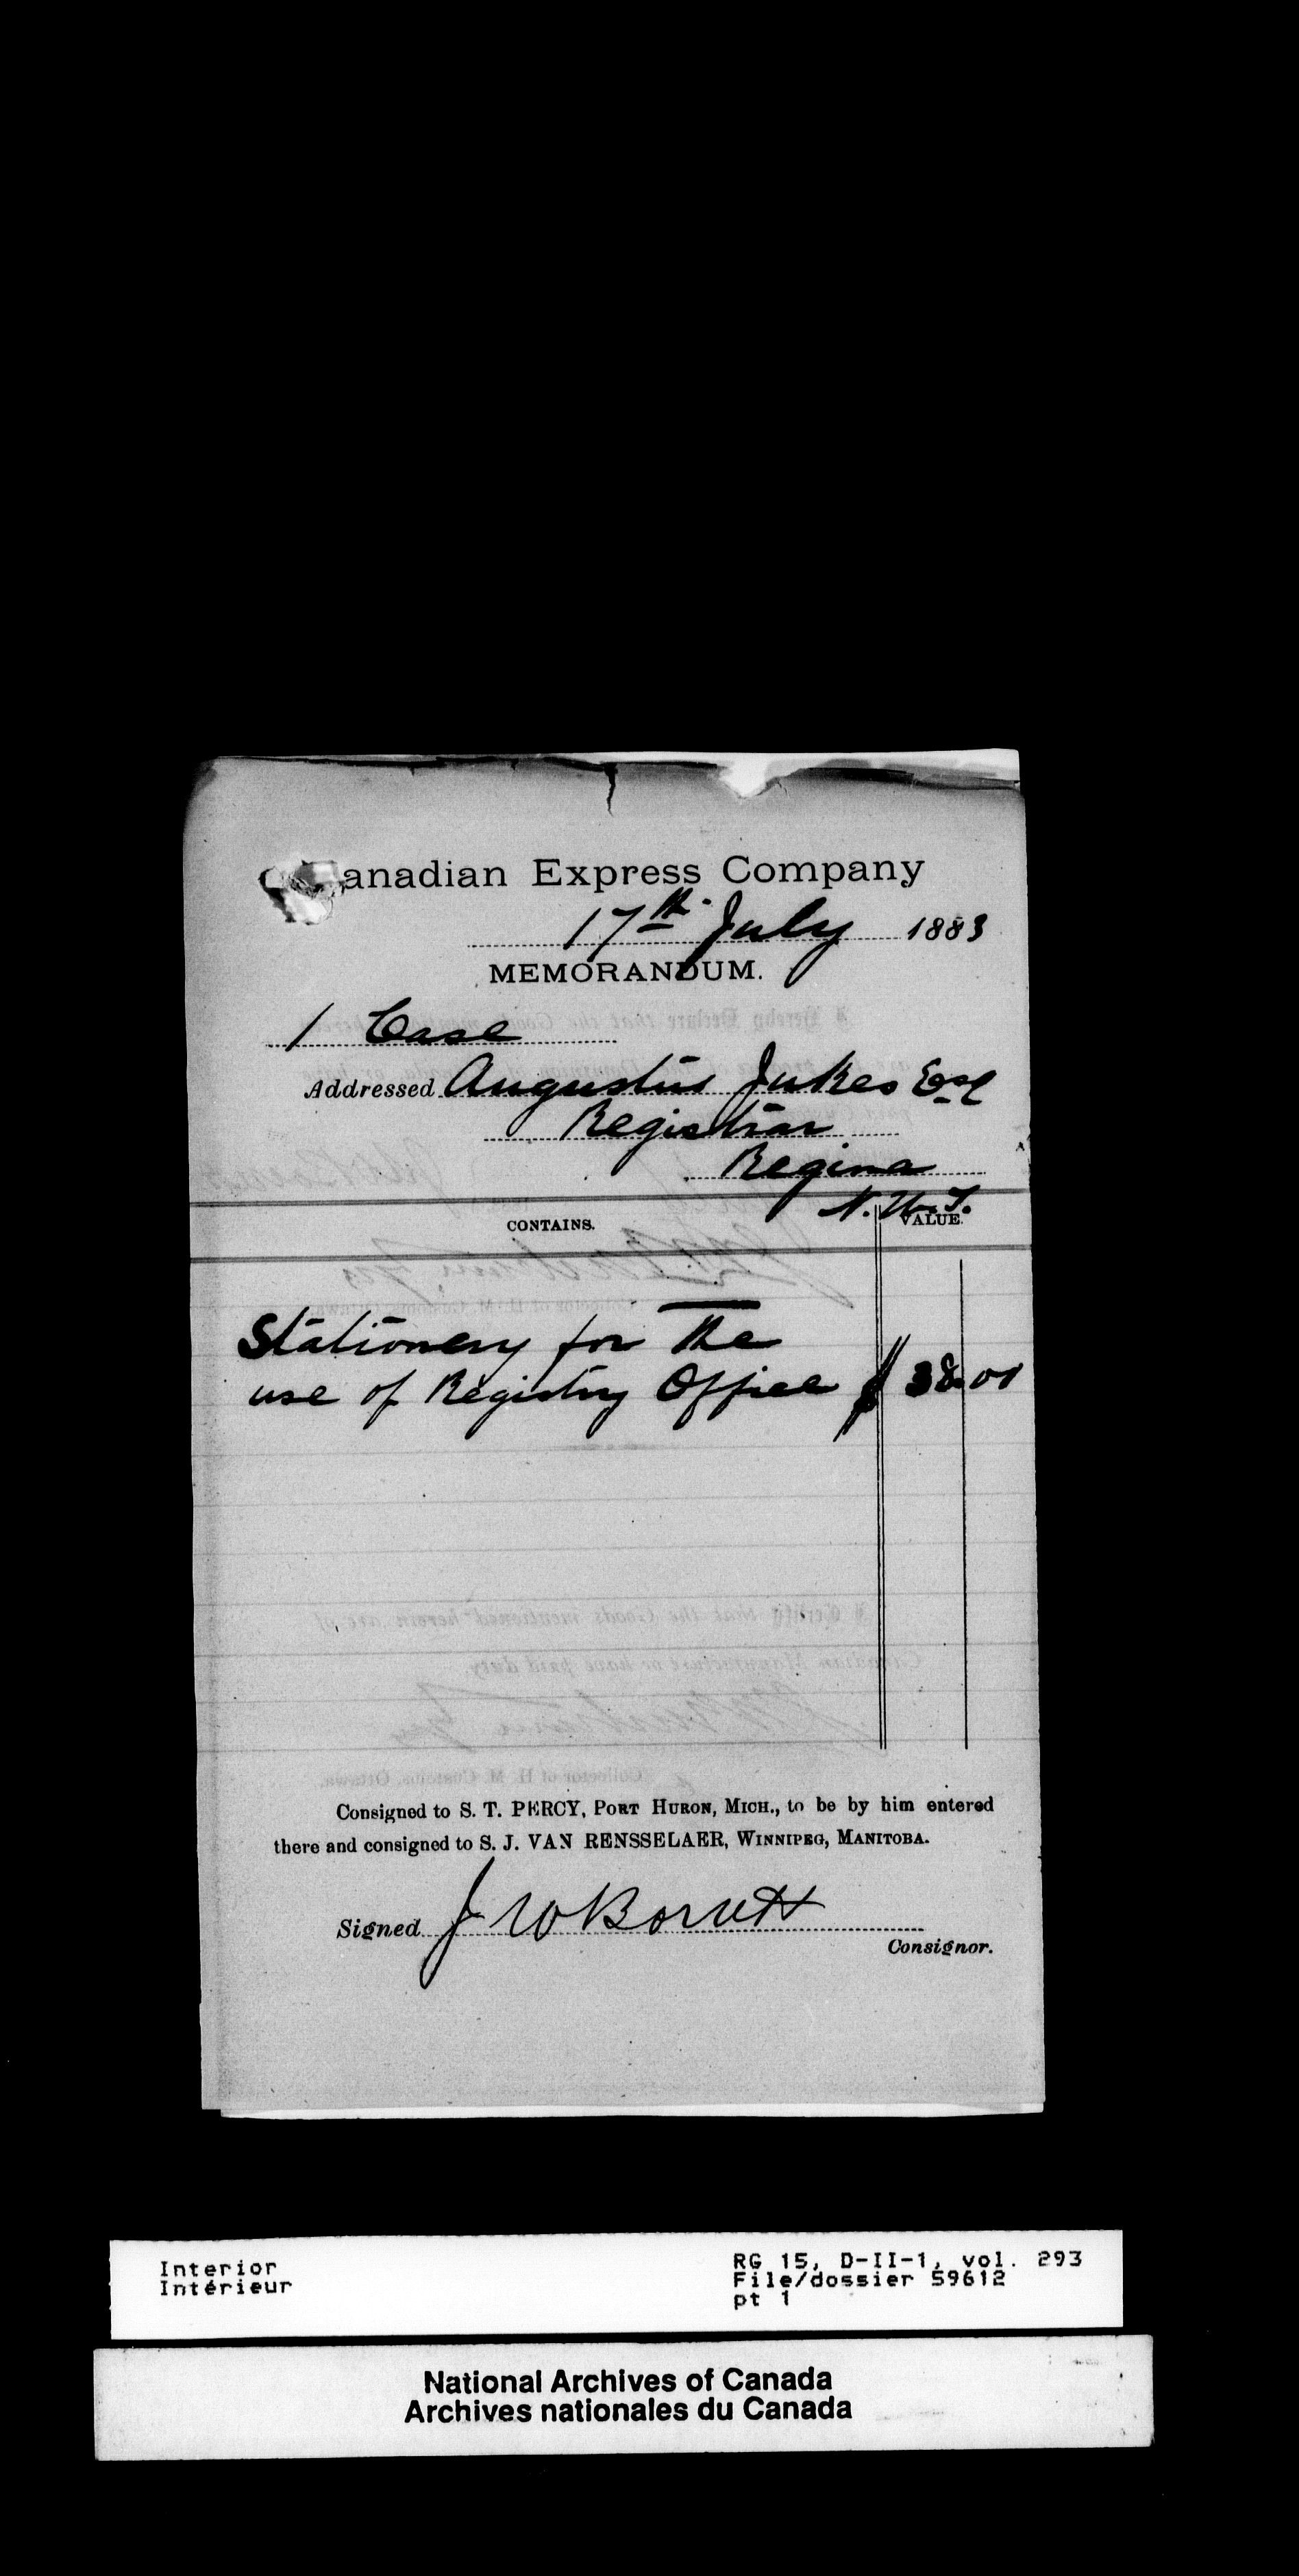 Canadian Express Company
17th. July 1883
MEMORANDUM.
1 Case
Addressed Augustus Jukes Esq
Registrar
Regina
N. W. T.
CONTAINS. VALUE.
Stationery for The
use of Registry Office $ 38.00
Consigned to S. T. PERCY, PORT HURON, MICH., to be by him entered
there and consigned to S. J. VAN RENSSELAER, WINNIPEG, MANITOBA.
Signed J W
Consignor.
Interior
Intérieur
RG 15, D-II-1, vol. 293
File/dossier 59612
pt 1
National Archives of Canada
Archives nationales du Canada